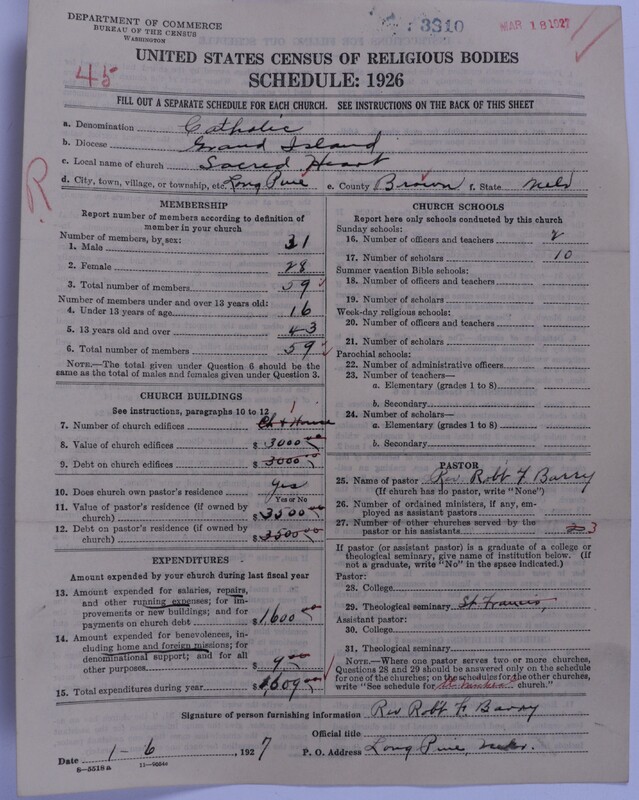 DEPARTMENT OF COMMERCE
BUREAU OF THE CENSUS
WASHINGTON
3310
MAR 18 1927
UNITED STATES CENSUS OF RELIGIOUS BODIES
45
SCHEDULE: 1926
FILL OUT A SEPARATE SCHEDULE FOR EACH CHURCH. SEE INSTRUCTIONS ON THE BACK OF THIS SHEET
a. Denomination Catholic
b. Diocese Grand Island
c. Local name of church Sacred Heart
d. City, town, village, or township, etc. Long Pine e. County Brown f. State Nebr
R
MEMBERSHIP
Report number of members according to definition of
member in your church
Number of members, by sex:
1. Male 31
2. Female 28
3. Total number of members 59
Number of members under and over 13 years old:
4. Under 13 years of age 16
5. 13 years old and over 43
6. Total number of members 59
NOTE.—The total given under Question 6 should be
same as the total of males and females given under Question 3.
CHURCH BUILDINGS
See instructions, paragraphs 10 to 12
7. Number of church edifices Ch & House 1
8. Value of church edifices $ 3000 00
9. Debt on church edifices $ 3000 00
10. Does church own pastor's residence Yes
Yes or No
11. Value of pastor's residence (if owned by
church) $ 3500 00
12. Debt on pastor's residence (if owned by
church) $ 3500 00
EXPENDITURES
Amount expended by your church during last fiscal year
13. Amount expended for salaries, repairs,
and other running expenses; for im-
provements or new buildings; and for
payments on church debt $ 1600 00
14. Amount expended for benevolences, in-
cluding home and foreign missions; for
denominational support; and for all
other purposes $ 9 00
15. Total expenditures during year $ 1609 00
CHURCH SCHOOLS
Report here only schools conducted by this church
Sunday schools:
16. Number of officers and teachers 2
17. Number of scholars 10
Summer vacation Bible schools:
18. Number of officers and teachers
19. Number of scholars
Week-day religious schools:
20. Number of officers and teachers
21. Number of scholars
Parochial schools:
22. Number of administrative officers
23. Number of teachers—
a. Elementary (grades 1 to 8)
b. Secondary
24. Number of scholars—
a. Elementary (grades 1 to 8)
b. Secondary
PASTOR
25. Name of pastor Rev. Robt F Barry
(If church has no pastor, write "None")
26. Number of ordained ministers, if any, em-
ployed as assistant pastors
27. Number of other churches served by the
pastor or his assistants 3
If pastor (or assistant pastor) is a graduate of a college or
theological seminary, give name of institution below. (If
not a graduate, write "No" in the space indicated.)
Pastor:
28. College
29. Theological seminary St. Francis
Assistant pastor:
30. College
31. Theological seminary
NOTE.—Where one pastor serves two or more churches,
Questions 28 and 29 should be answered only on the schedule
for one of the churches; on the schedules for the other churches,
write "See schedule for church."
Signature of person furnishing information Rev Robt F Barry
Official title
Date 1-6, 1927 P. O. Address Long Pine, Nebr.
8-5518a